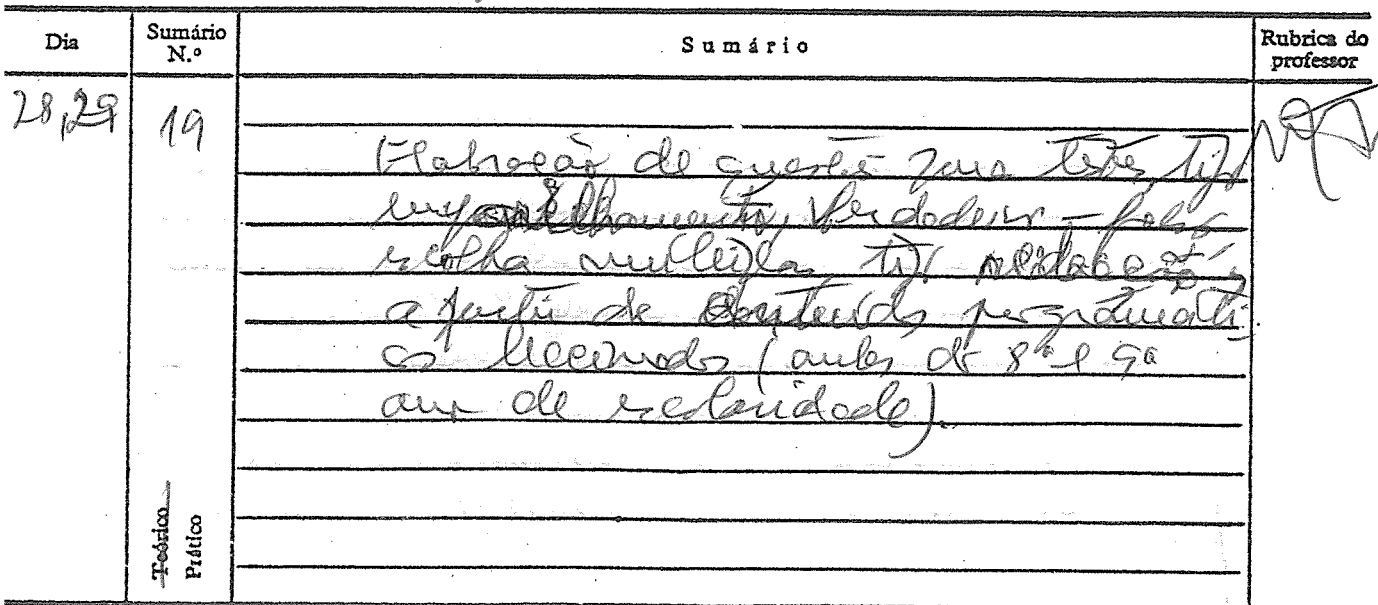 Dia
Sumário N.º
Sumário
Rubrica do professor
28,29
19
Elaboração de questões para testes, tipo
emparelhamento, Verdadeiro - falso,
escolha múltipla, tipo redacção,
a partir de conteúdos programáti
cos leccionados (aulas do 8º e 9º
ano de escolaridade).
Teórico
Prático